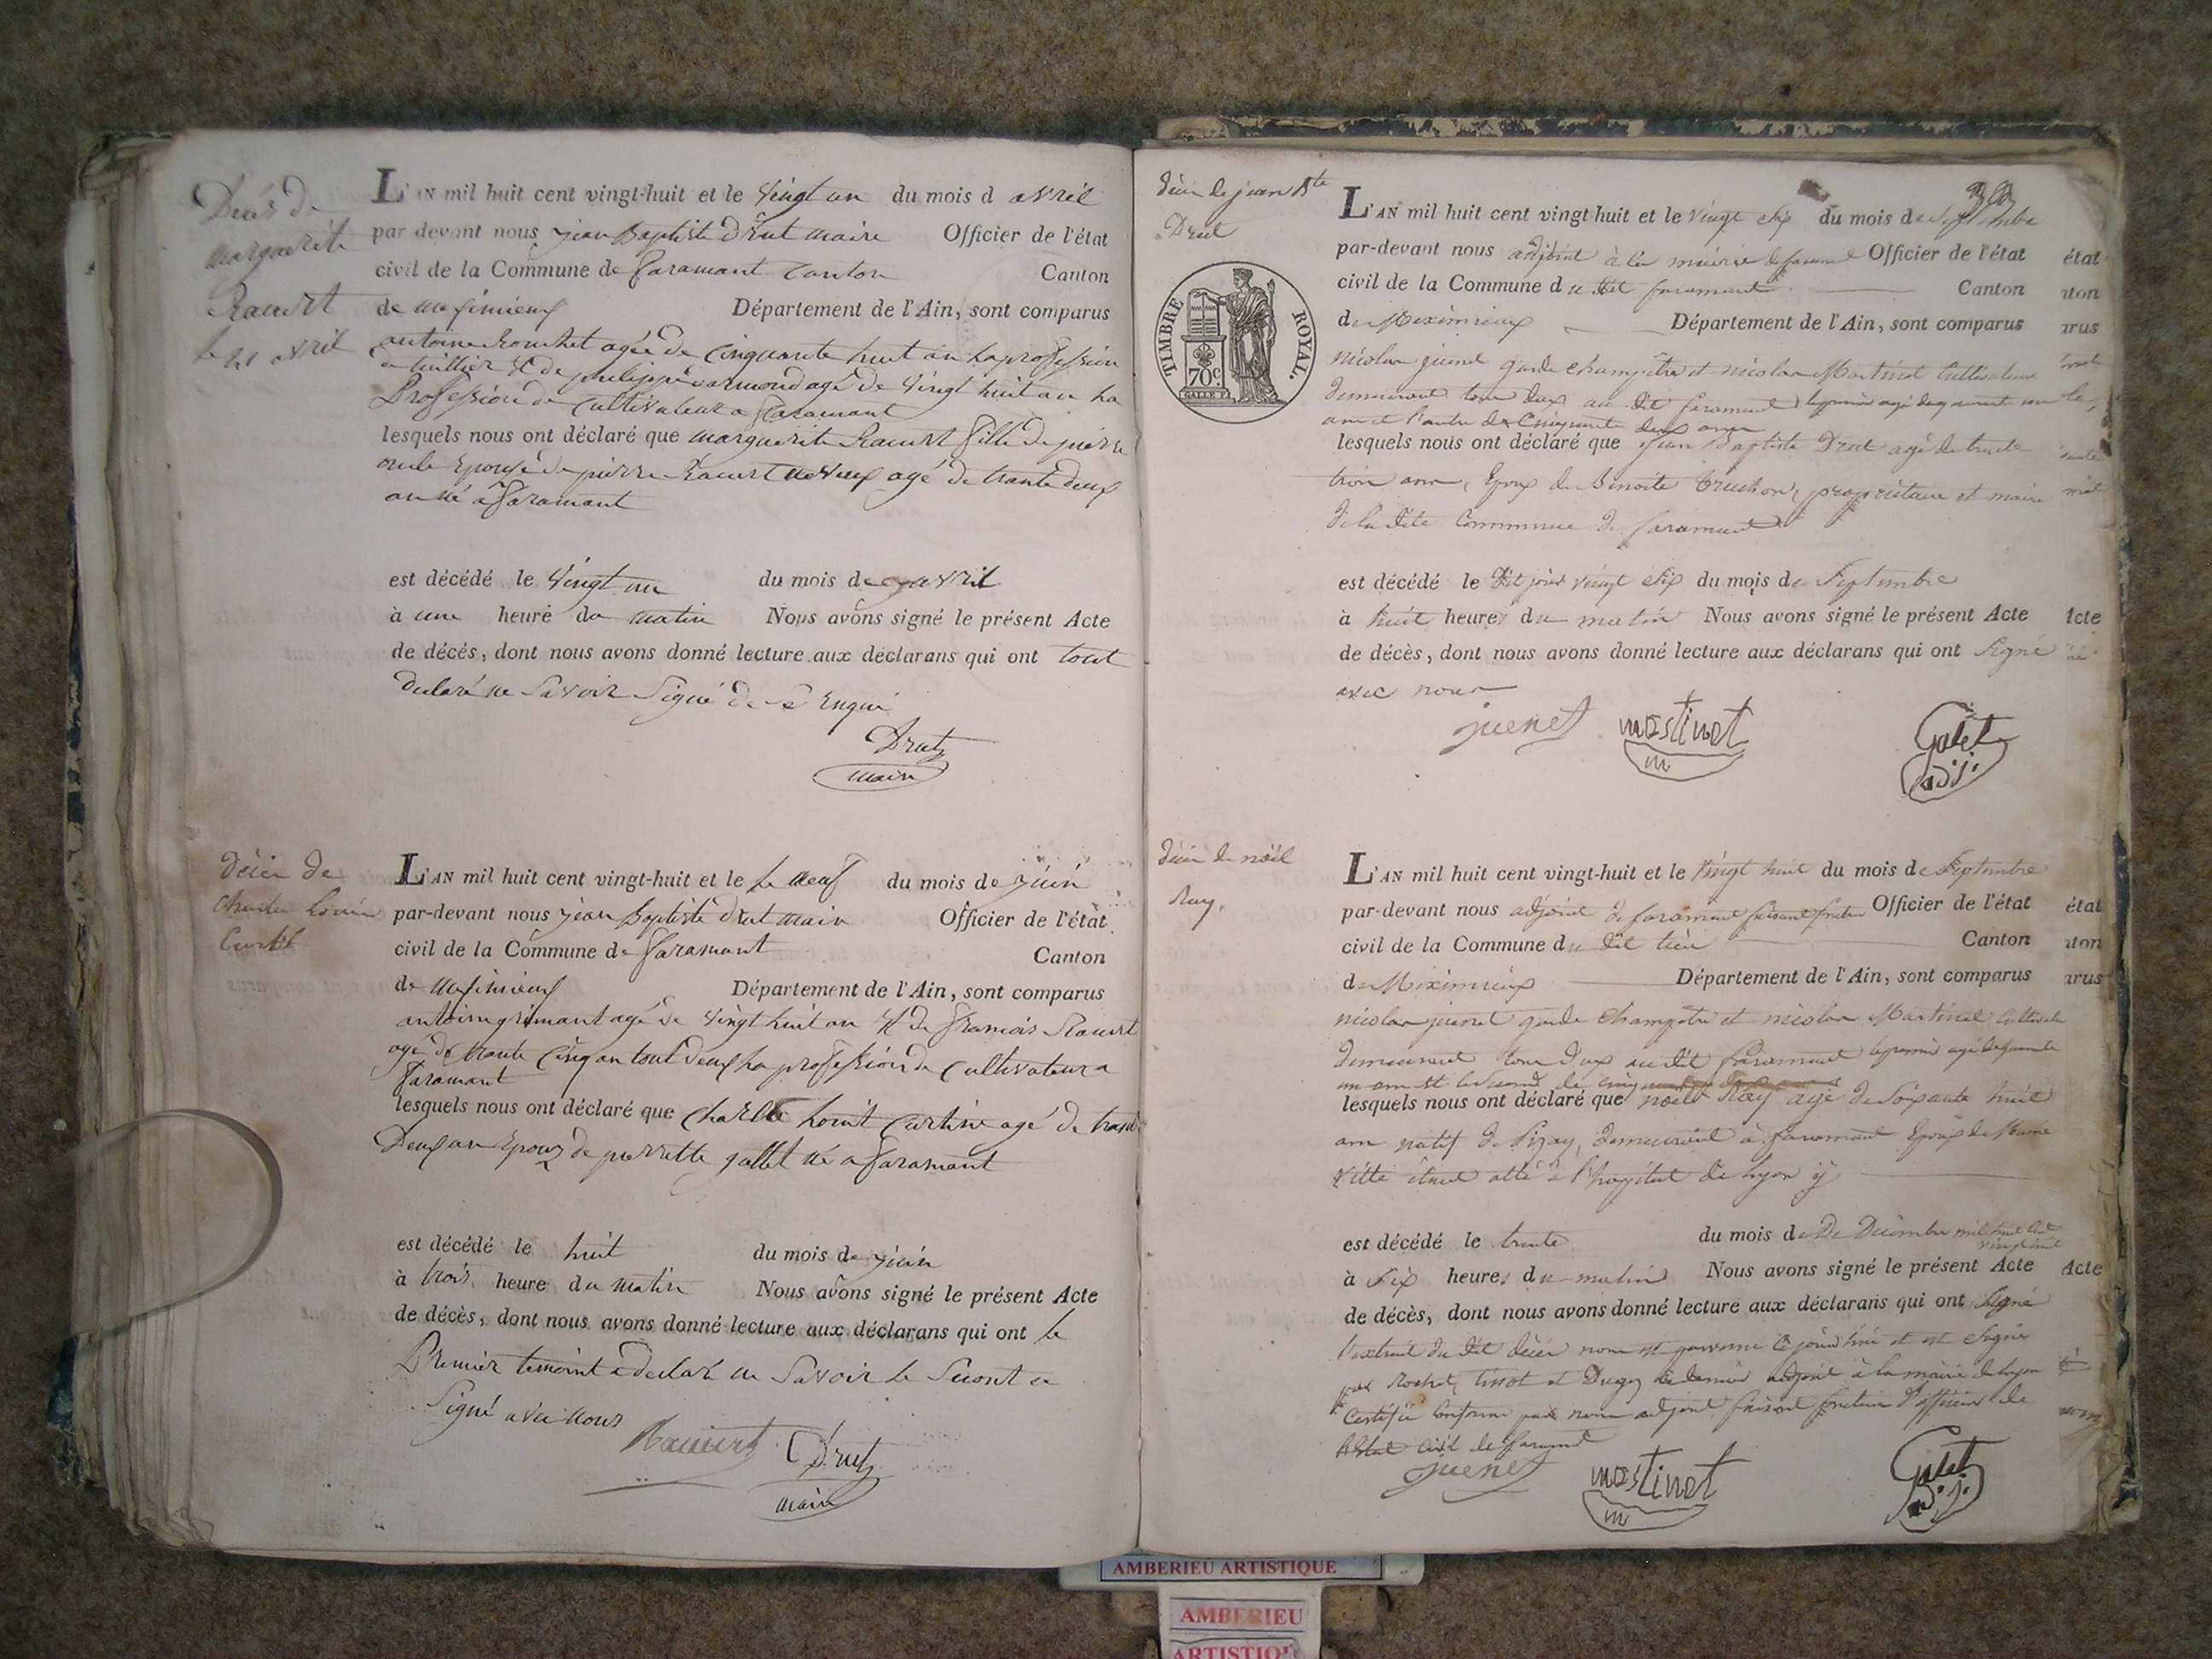 Décés de
marguerite
Raccurt
le 21 avril
L'AN mil huit cent vingt-huit et le vingt un du mois d avril
par-devant nous jean Baptiste drut maire Officier de l'état
civil de la Commune de faramant canton Canton
de meximieux Département de l'Ain, sont comparus
antoine agée de cinquante huit an sa profession
de philippe agé de vingt huit an sa
Profession de cultivateur a faramant
lesquels nous ont déclaré que marguerite Racurt fille de pierre
Epouse de pierre Racurt agé de trante deux
an né a faramant
est décédé le vingt un du mois de avril
à une heure du matin Nous avons signé le présent Acte
de décés, dont nous avons donné lecture aux déclarans qui ont tout
declaré ne savoir signé de ce enqui
Drut
maire
décès de
Charles Louis
L'AN mil huit cent vingt-huit et le le neuf du mois de juin
par-devant nous jean Baptiste drut maire Officier de l'état
civil de la Commune de faramant Canton
de meximieux Département de l'Ain, sont comparus
antoine grimant agé de vingt huit an de francois Racurt
agé de trante cinq an tout deux sa profession de cultivateur a
faramant
lesquels nous ont déclaré que agé de
Deux an Epoux de pierrette gallet né a faramant
est décédé le huit du mois de juin
à trois heure du matin Nous avons signé le présent Acte
de décès, dont nous avons donné lecture aux déclarans qui ont le
Premier temoint a declaré ne savoir le segont a
signé avec nous
Raccurt Drut
maire
décès de jean Bte
Drut
TIMBRE ROYAL.
70c
L'AN mil huit cent vingt-huit et le vingt six du mois de septembre
par-devant nous adjoint à la mairie de faramant Officier de l'état
civil de la Commune du dit faramant Canton
de Meximieux Département de l'Ain, sont comparus
nicolas juenet garde champêtre et nicolas Martinet cultivateur
demeurant tous deux au dit faramant le premier agé de quarante un
ans et l'autre de cinquante deux ans
lesquels nous ont déclaré que jean Baptiste Drut agé de trente
trois ans, Epoux de Benoite Truchon, propriétaire et maire
de la dite commune de faramant
est décédé le dit jour vingt six du mois de septembre
à huit heures du matin Nous avons signé le présent Acte
de décès, dont nous avons donné lecture aux déclarans qui ont signé
avec nous
juenet martinet Galet
adj.
décès de noël
Ray.
L'AN mil huit cent vingt-huit et le vingt huit du mois de septembre
par-devant nous adjoint de faramant faisant fonction Officier de l'état
civil de la Commune du dit lieu Canton
de Meximieux Département de l'Ain, sont comparus
nicolas juenet garde champêtre et nicolas Martinet cultivateur
demeurant tous deux au dit faramant le premier agé de quarante
un ans et le second de cinquante
lesquels nous ont déclaré que noël Ray agé de soixante huit
ans natif de Pizay, demeurant à faramant Epoux de
étant allé à l'hopital de Lyon y
est décédé le trente du mois de De Décembre mil huit cent
à six heures du matin Nous avons signé le présent Acte
de décès, dont nous avons donné lecture aux déclarans qui ont signé
l'extrait du dit décès nous est parvenu ce jourd'hui et est signé
par Rochet, Tissot et Dugey le dernier adjoint à la mairie de Lyon
certifié conforme par nous adjoint faisant fonction d'officier de
l'état civil de faramant
juenet martinet Galet
adj.
état
nton
arus
Acte
état
nton
arus
Acte
AMBERIEU ARTISTIQUE
AMBERIEU
ARTISTIQUE